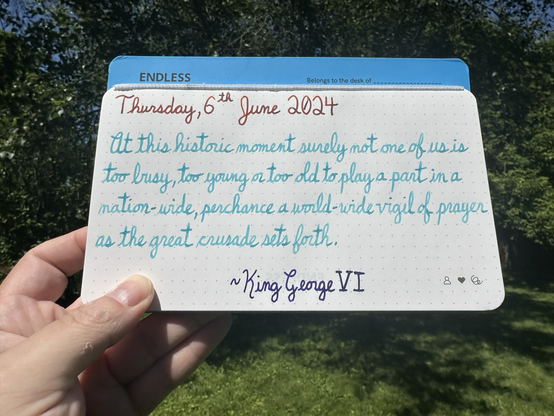 ENDLESS
Belongs to the desk of
Thursday, 6th June 2024
At this historic moment surely not one of us is
too busy, too young or too old to play a part in a
nation-wide, perchance a world-wide vigil of prayer
as the great crusade sets forth.
~King George VI